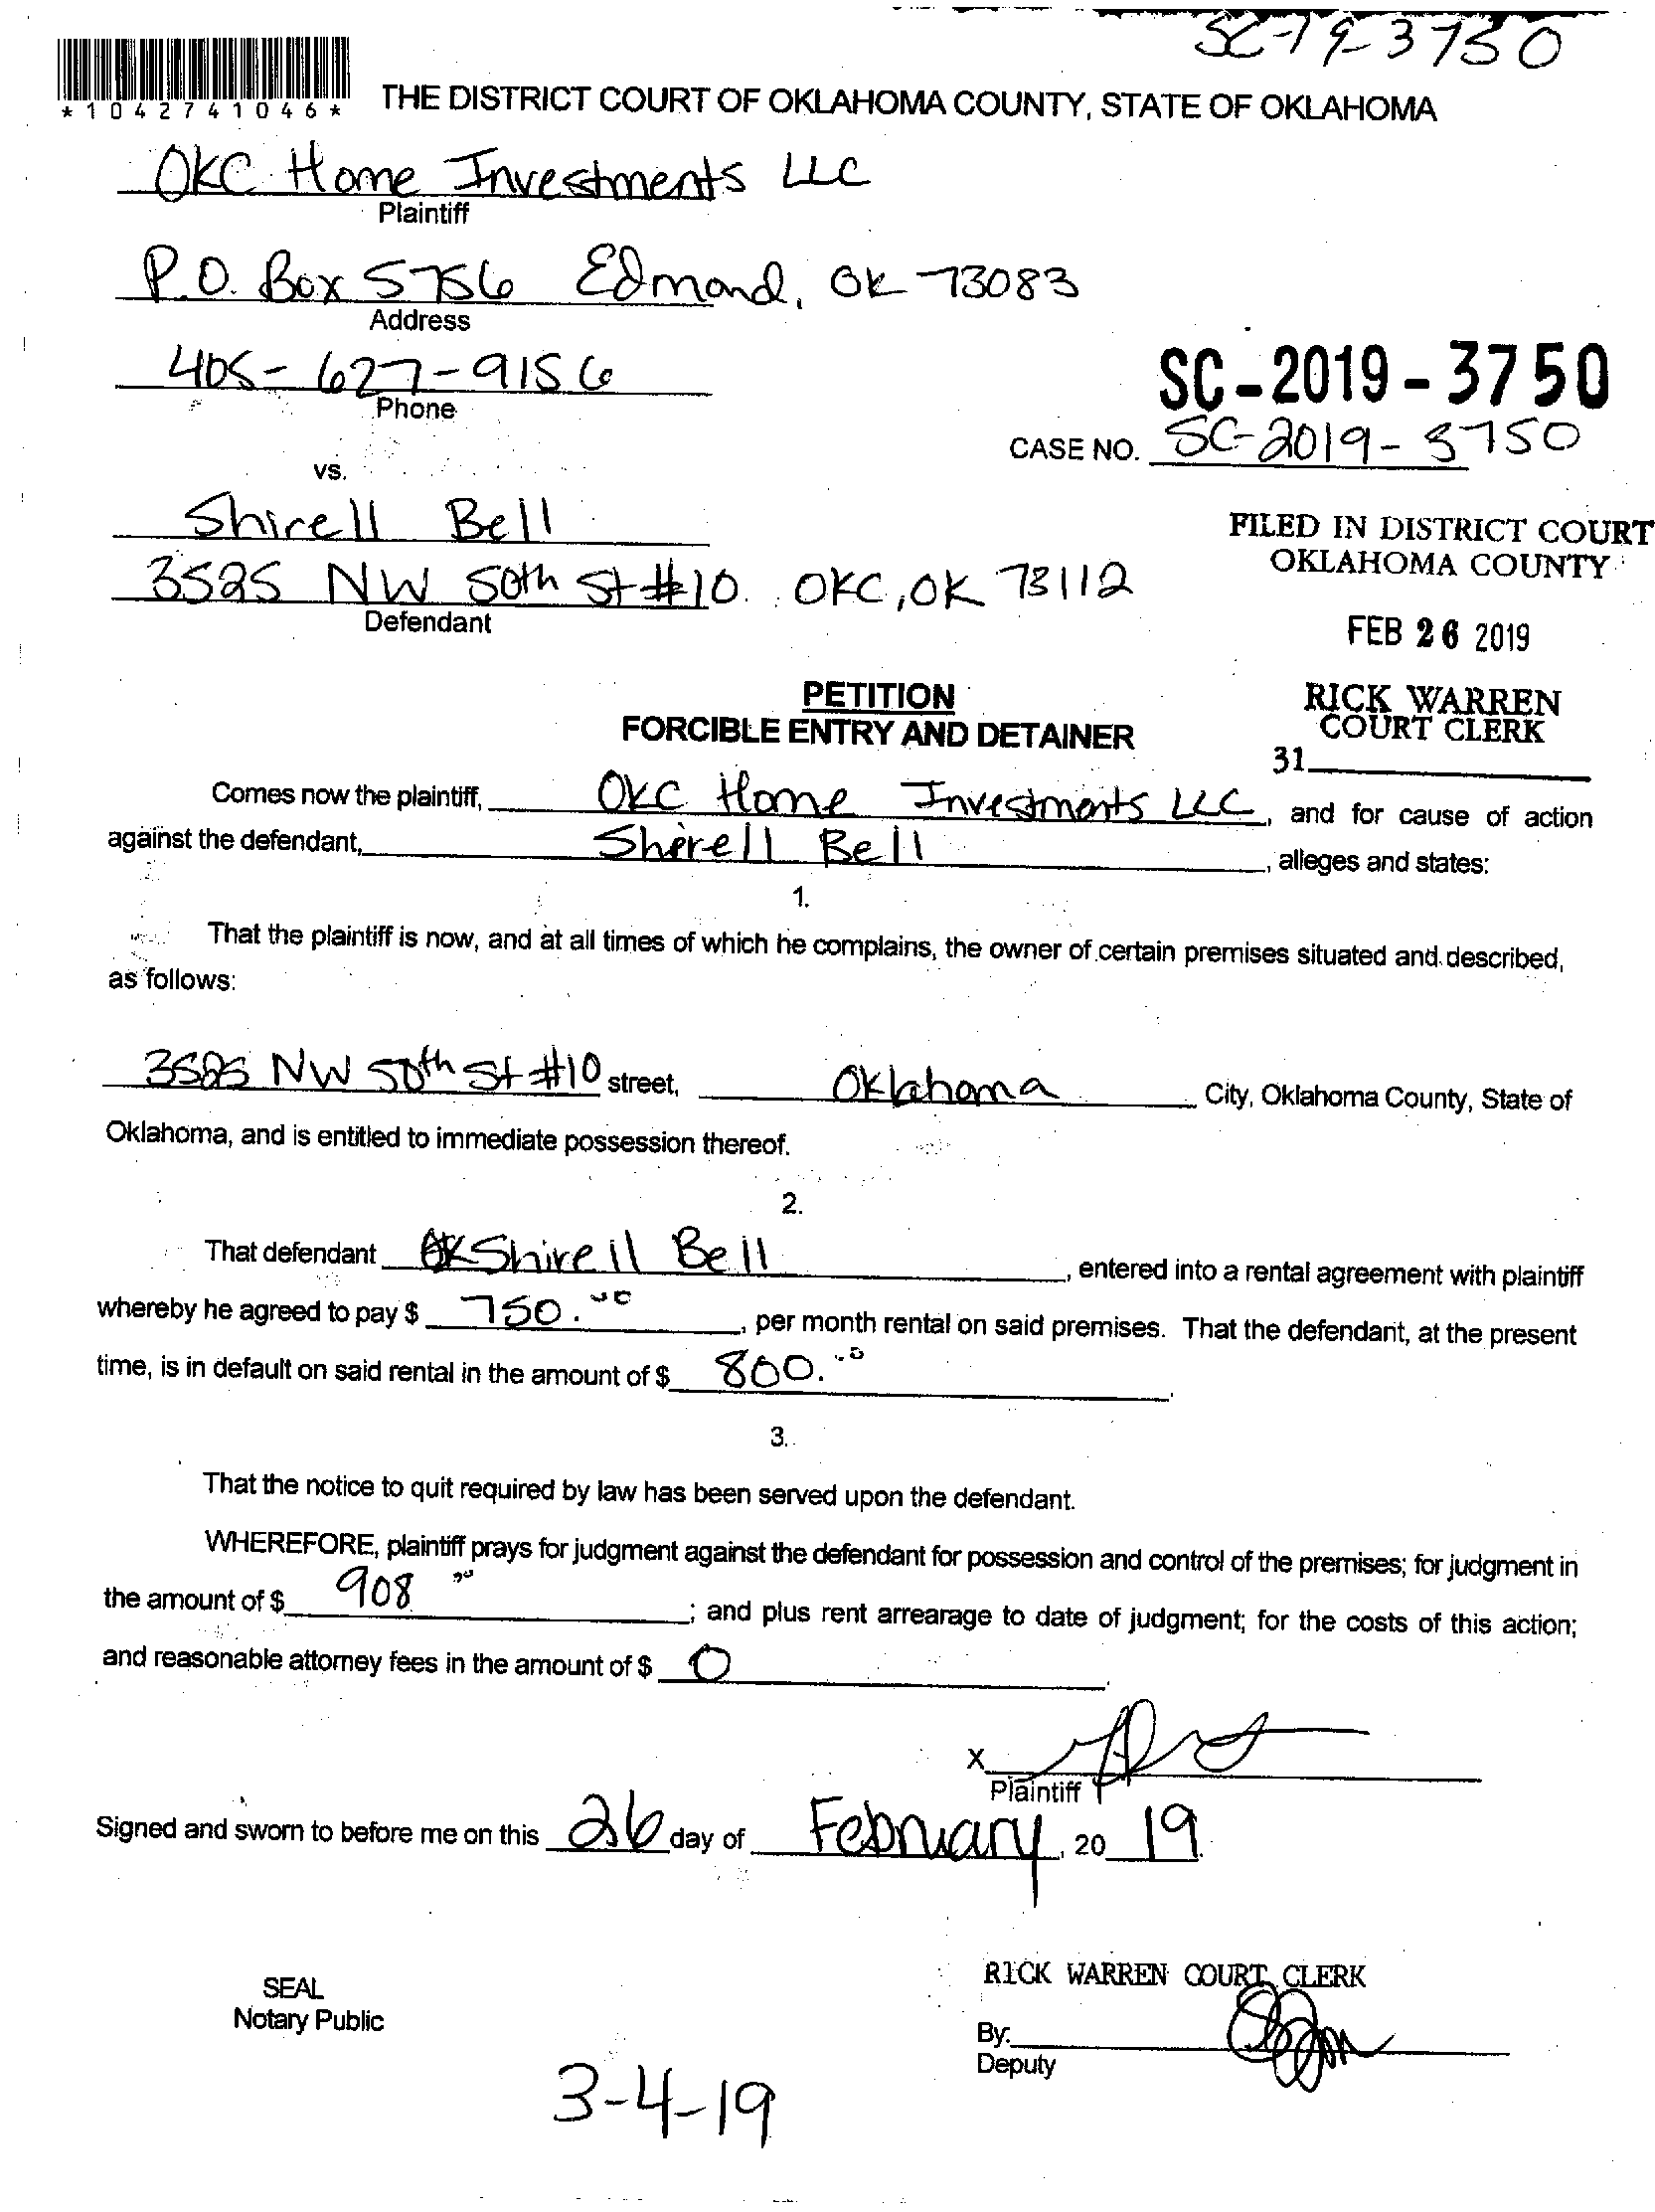 SC-19-3750
*1042741046*
THE DISTRICT COURT OF OKLAHOMA COUNTY, STATE OF OKLAHOMA
OKC Home Investments LLC
Plaintiff
P.O. Box 5756 Edmond, OK 73083
Address
405-627-9156
Phone
SC-2019-3750
CASE NO. SC-2019-3750
vs.
Shirell Bell
FILED IN DISTRICT COURT
OKLAHOMA COUNTY
3525 NW 50th St #10. OKC, OK 73112
Defendant
FEB 26 2019
PETITION
FORCIBLE ENTRY AND DETAINER
RICK WARREN
COURT CLERK
31
Comes now the plaintiff, OKC Home Investments LLC, and for cause of action
against the defendant, Sherell Bell, alleges and states:
1.
That the plaintiff is now, and at all times of which he complains, the owner of certain premises situated and described,
as follows:
3525 NW 50th St #10 street, Oklahoma City, Oklahoma County, State of
Oklahoma, and is entitled to immediate possession thereof.
2.
That defendant Shirell Bell, entered into a rental agreement with plaintiff
whereby he agreed to pay $ 750.00, per month rental on said premises. That the defendant, at the present
time, is in default on said rental in the amount of $ 800.00.
3.
That the notice to quit required by law has been served upon the defendant.
WHEREFORE, plaintiff prays for judgment against the defendant for possession and control of the premises; for judgment in
the amount of $ 908 00; and plus rent arrearage to date of judgment; for the costs of this action;
and reasonable attorney fees in the amount of $ 0.
X
Plaintiff
Signed and sworn to before me on this 26 day of February, 20 19.
RICK WARREN COURT CLERK
SEAL
Notary Public
By:
Deputy
3-4-19